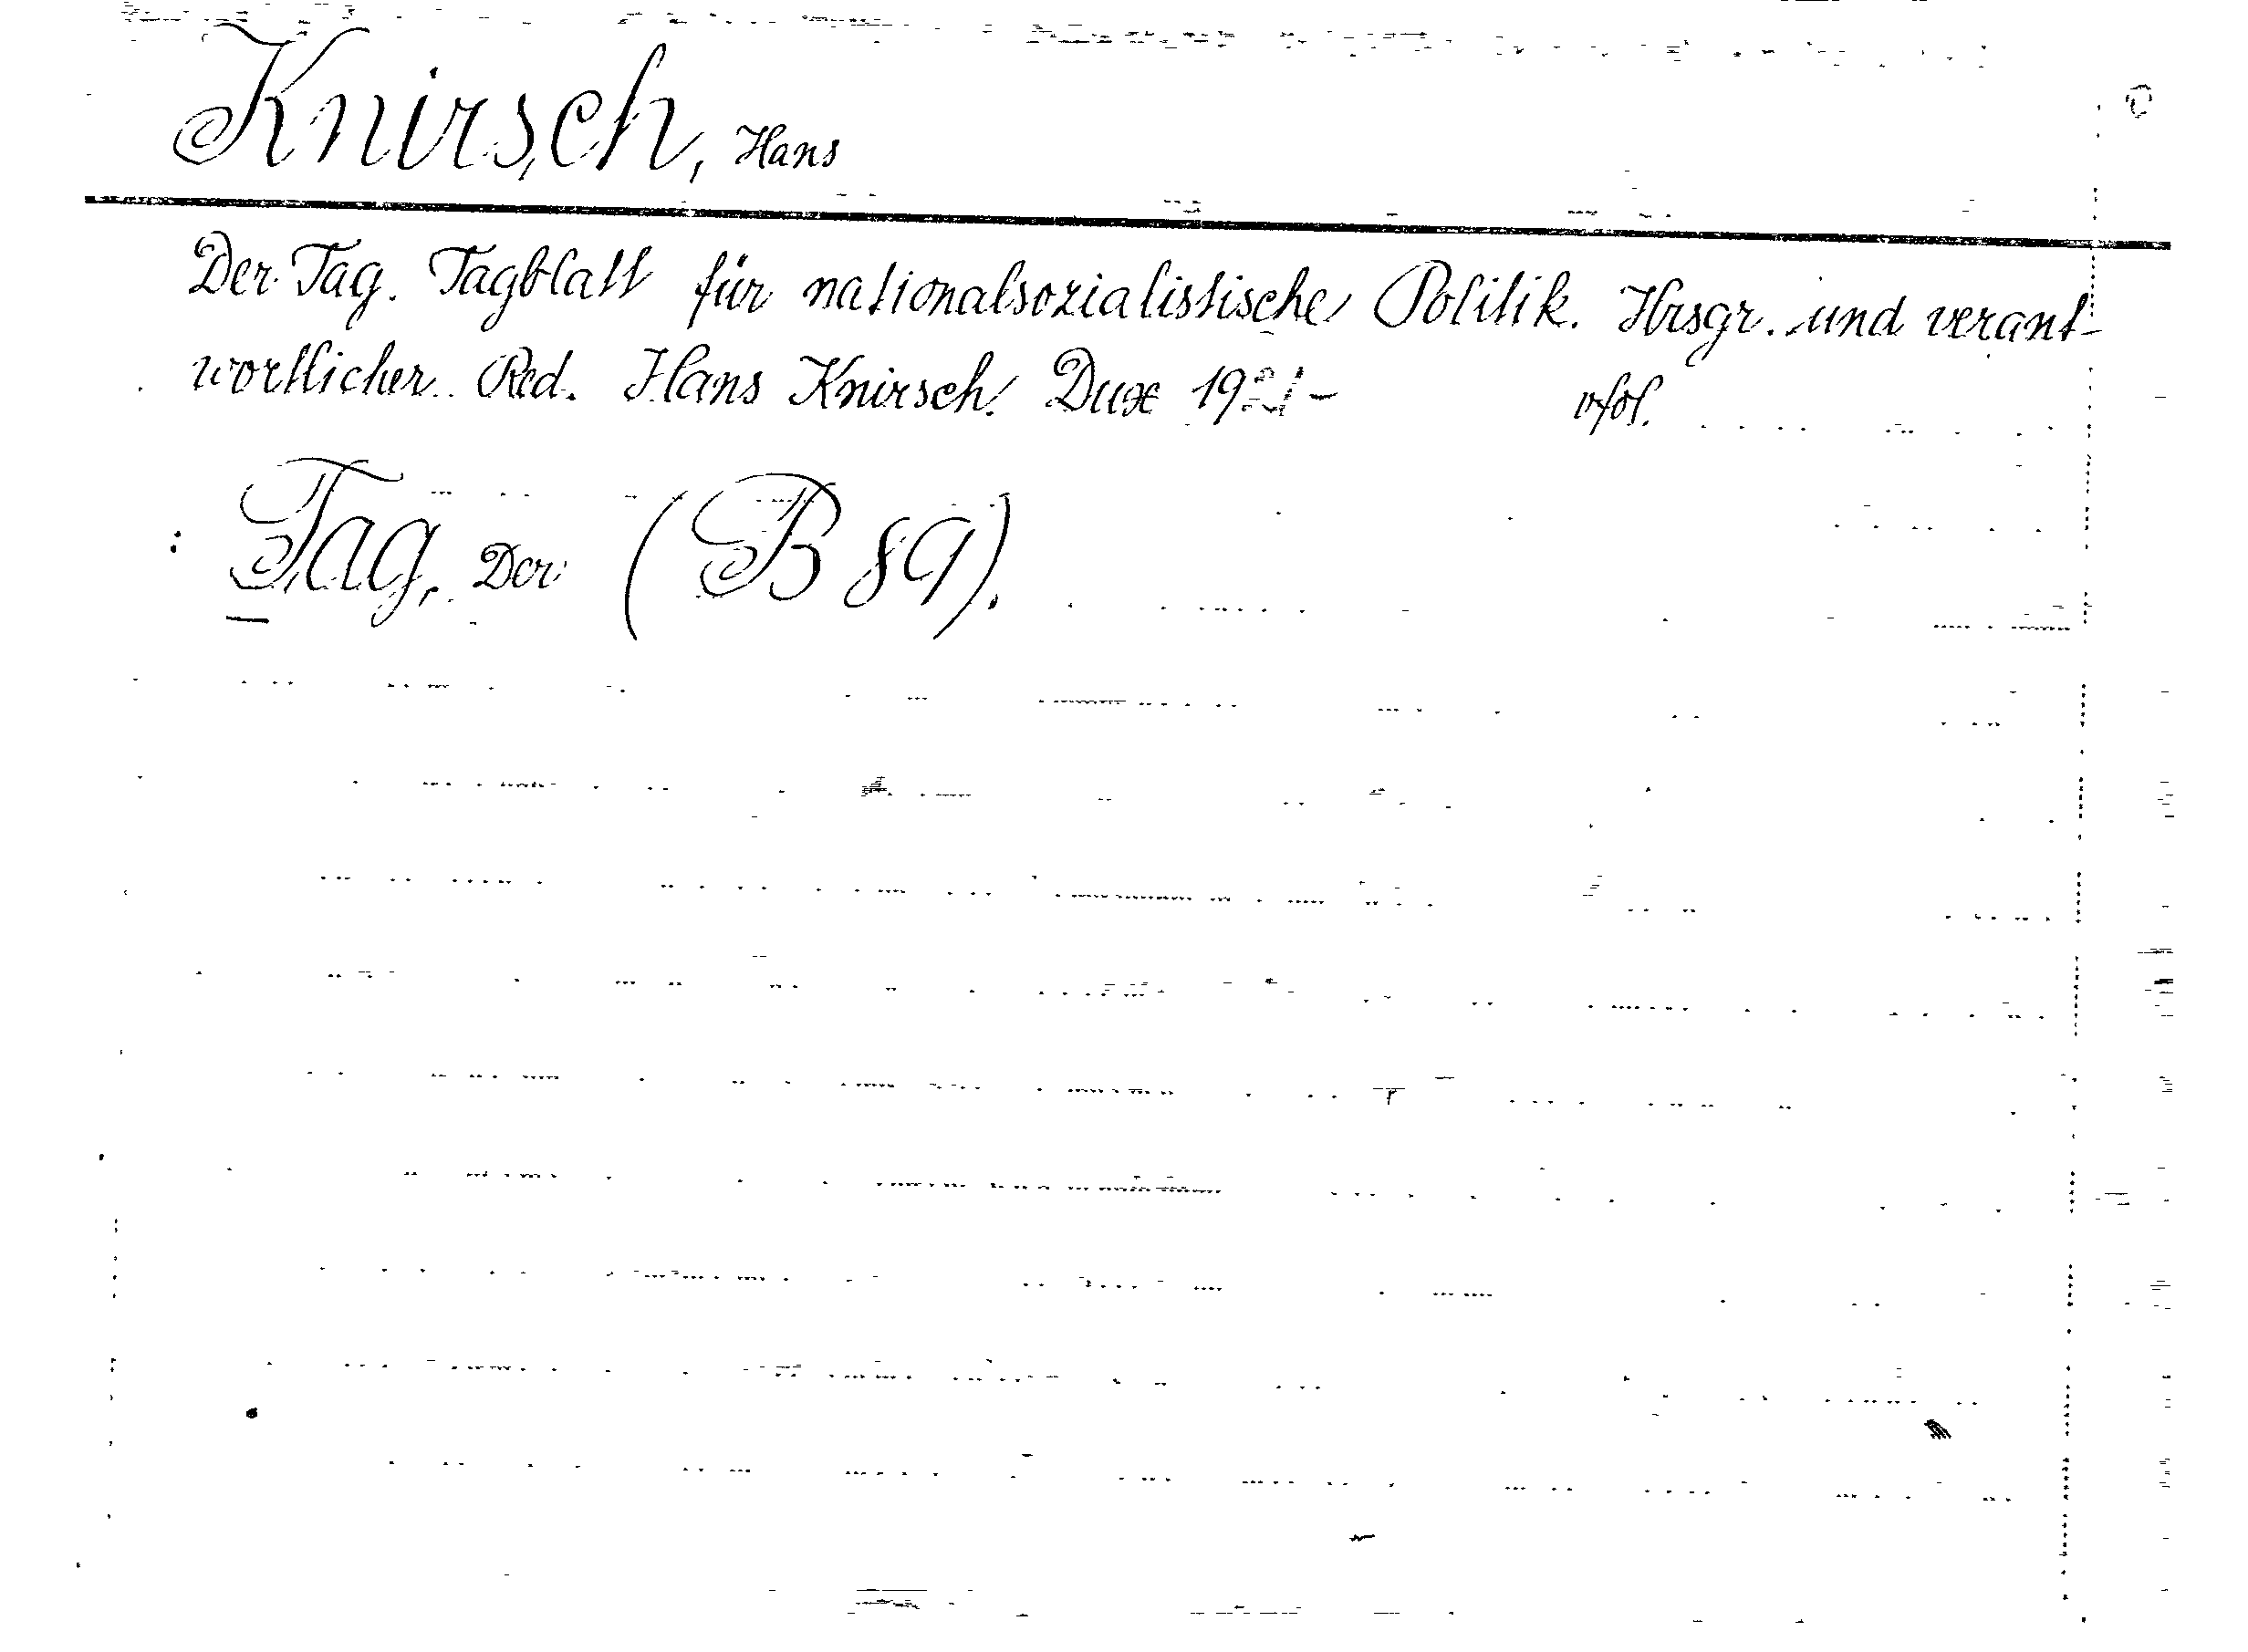 Knirsch, Hans
Der Tag. Tagblatt für nationalsozialistische Politik. Hrsgr. und verant-
wortlicher Red. Hans Knirsch. Dux 1921-
: Tag, Der (B 89).